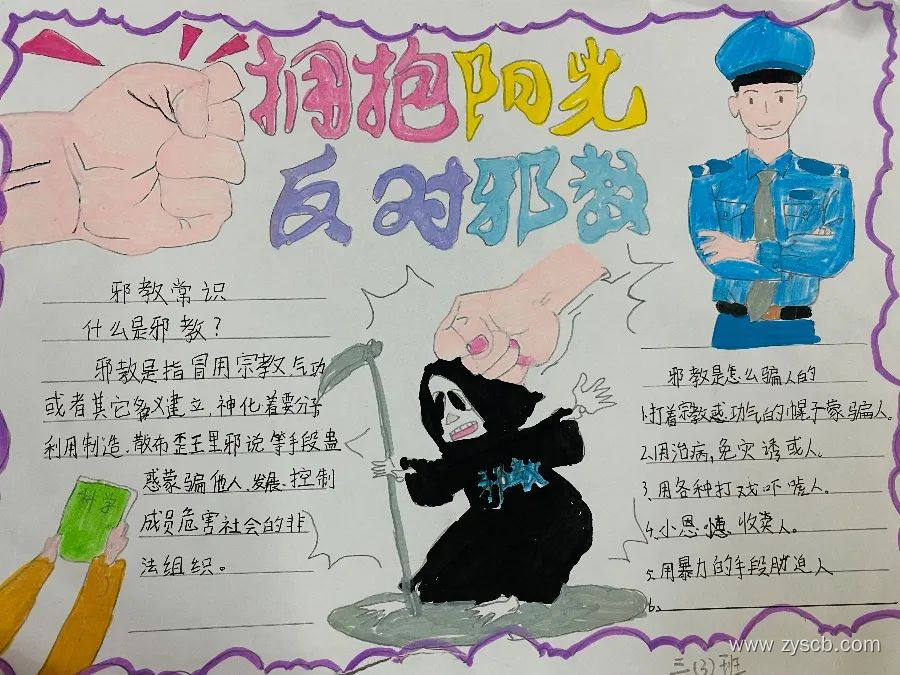 拥抱阳光
反对邪教
邪教常识
什么是邪教?
邪教是指冒用宗教气功
或者其它名义建立,神化着要分子
利用制造、散布歪王里邪说等手段蛊
惑蒙骗他人,发展、控制
成员危害社会的非
法组织。
科学
邪教
邪教是怎么骗人的
1.打着宗教惑功气的幌子蒙骗人。
2.用治病,免灾诱或人。
3.用各种打戏吓唬人。
4.小恩惠收卖人。
5.用暴力的手段胁迫人
6.
三(3)班
www.zyscb.com